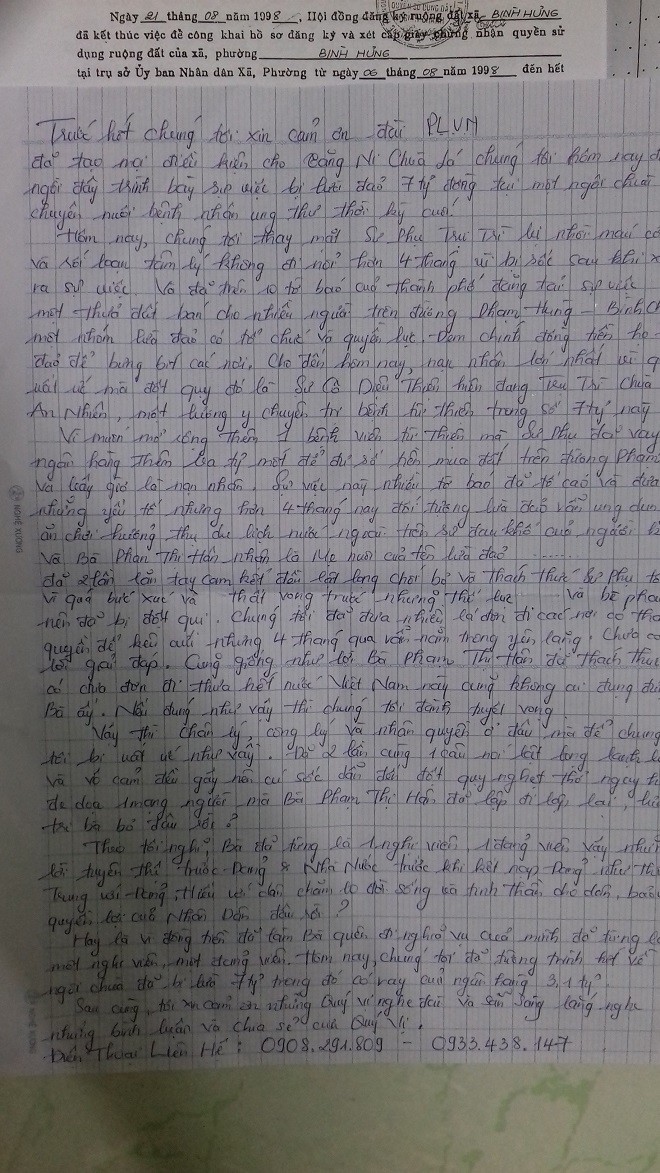 Ngày 21 tháng 08 năm 1998, Hội đồng đăng ký ruộng đất xã, BÌNH HƯNG
đã kết thúc việc đề công khai hồ sơ đăng ký và xét cấp giấy chứng nhận quyền sử
dụng ruộng đất của xã, phường BÌNH HƯNG
tại trụ sở Ủy ban Nhân dân Xã, Phường từ ngày 06 tháng 08 năm 1998 đến hết
Trước hết chúng tôi xin cảm ơn đài PLVN
đã tạo mọi điều kiện cho Tăng Ni Chùa chúng tôi hôm nay
ngồi đây trình bày sự việc bị lừa đảo 7 tỷ đồng tại một ngôi chùa
chuyên nuôi bệnh nhân ung thư thời kỳ cuối.
Hôm nay, chúng tôi thay mặt Sư Phụ Trụ Trì bị nhồi máu
và rối loạn tâm lý không đi nổi hơn 4 tháng vì bị sốc sau khi
ra sự việc. Và đã trên 10 tờ báo của thành phố đăng tải sự việc
một thửa đất bán cho nhiều người trên đường Phạm Hùng - Bình
một nhóm lừa đảo có tổ chức và quyền lực. Đem chính đồng tiền
đảo để bưng bít các nơi. Cho đến hôm nay, nạn nhân lớn nhất vì
uất ức mà đột quỵ đó là Sư Cô Diệu Thiên hiện đang Trụ Trì chùa
An Nhiên, một lương y chuyên trị bệnh từ thiện trong số 7 tỷ này
Vì muốn mở rộng thêm 1 bệnh viện từ thiện mà Sư phụ đã vay
ngân hàng thêm ba tỷ mốt để đủ số tiền mua đất trên đường Phạm
Và bây giờ là nạn nhân. Sự việc này nhiều tờ báo đã tố cáo và đưa
những yếu tố nhưng hơn 4 tháng nay đối tượng lừa đảo vẫn ung dung
ăn chơi hưởng thụ du lịch nước ngoài trên sự đau khổ của người
Và Bà Phạm Thị Hân nhận là Mẹ nuôi của tên lừa đảo ........
đã 2 lần lăn tay cam kết đều lật lọng chối bỏ và thách thức Sư Phụ
Vì quá bức xúc và thất vọng trước những thế lực Và bè
nên đã bị đột quỵ. Chúng tôi đã đưa nhiều lá đơn đi các nơi có
quyền để kêu cứu nhưng 4 tháng qua vẫn nằm trong yên lặng. Chưa có
lời giải đáp. Cũng giống như lời Bà Phạm Thị Hân đã thách thức
có chứa đơn đi thưa hết nước Việt Nam này cũng không ai đụng
Bà ấy. Nếu đúng như vậy thì chúng tôi đành tuyệt vọng.
Vậy thì chân lý, công lý và nhân quyền ở đâu mà để chúng
tôi bị uất ức như vậy. Đã 2 lần cùng 1 câu nói lật lọng
và vô cảm đều gây nên cú sốc dẫn đến đột quỵ nghẹt thở ngay
đe dọa 1 mạng người mà Bà Phạm Thị Hân đã lập đi lập lại,
trị bà bỏ đâu rồi?
Theo tôi nghĩ, Bà đã từng là 1 nghị viên, 1 đảng viên vậy
lời tuyên thệ trước Đảng & Nhà Nước trước khi kết nạp Đảng như
Trung với Đảng, Hiếu với dân chăm lo đời sống và tinh thần cho dân,
quyền lợi của Nhân Dân đâu rồi?
Hay là vì đồng tiền đã làm Bà quên đi nghĩa vụ của mình đã từng
một nghị viên, một đảng viên. Hôm nay, chúng tôi đã tường trình hết về
ngôi chùa đã bị lừa 7 tỷ trong đó có vay của ngân hàng 3,1 tỷ.
Sau cùng, tôi xin cảm ơn những Quý vị nghe đài và sẵn sàng lắng nghe
những bình luận và chia sẻ của Quý Vị.
Điện Thoại Liên Hệ: 0908.291.809 - 0933.438.147